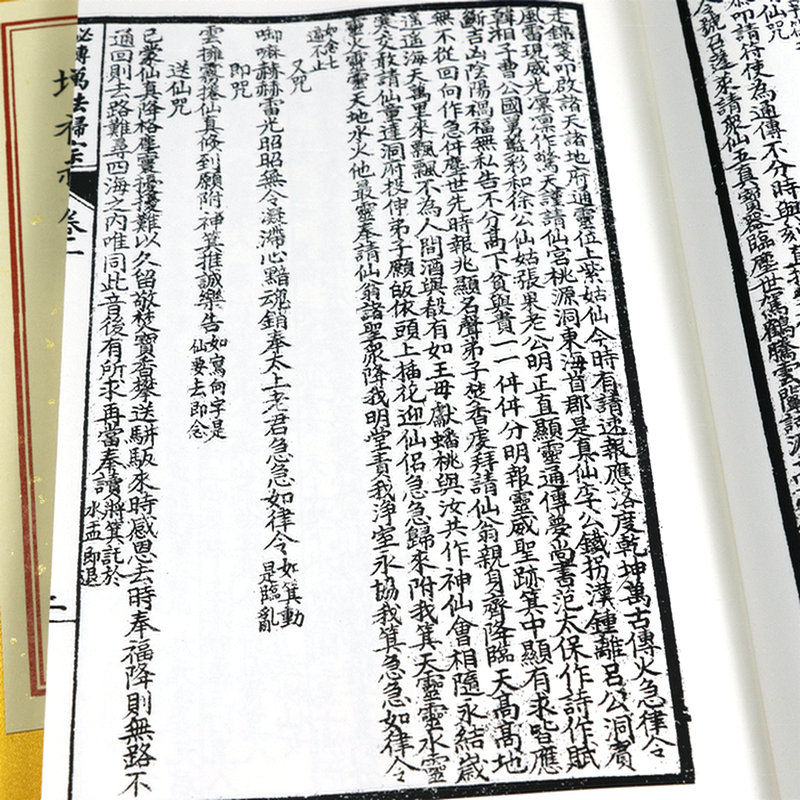 仙咒
叩請符使為通傳不分時與刻直
令號召蓬萊請眾仙五真寶器臨塵世駕鶴騰雲
走錦箋叩啟諸天諸地府通靈位上紫姑仙今時有請速報應洛度乾坤萬古傳火急律令
風雷現威光凜凜作驚天謹請仙宮桃源洞東海首郡是真仙李公鐵拐漢鍾離呂公洞賓
韓湘子曹公國舅藍彩和徐公仙姑張果老公明正直顯靈通傳夢尚書范太保作詩作賦
斷吉凶陰陽禍福無私告不分高下貧與貴一一件件分明報靈威聖跡箕中顯有求皆應
無不從回向作急件塵世先時報兆顯名聲弟子焚香虔拜請仙翁親身齊降臨天高高地
遙遙海天萬里來飄飄不為人間酒與穀有如王母獻蟠桃與汝共作神仙會相隨永結歲
寒交敢請仙童達洞府投伸弟子願皈依頭上插花迎仙侶急急歸來附我箕天靈靈水靈
靈火靈靈天地水火他最靈奉請仙翁諸聖眾降我明堂責我淨室永協我箕急急如律令
如念七
遍不止
又咒
唧嘛赫赫雷光昭昭無令凝滯心黯魂銷奉太上老君急急如律令如箕動
是臨亂
即咒
雲擁霞擾仙真候到願附神箕推誠樂告如寫向字是
仙要去即念
送仙咒
已蒙仙真降格塵寰擾擾難以久留敬焚寶香攀送駢馭來時感恩去時奉福降則無路不
通回則去路難尋四海之內唯同此音後有所求再當奉讀將箕託於
水盂即退
秘傳萬法歸宗 卷二
二